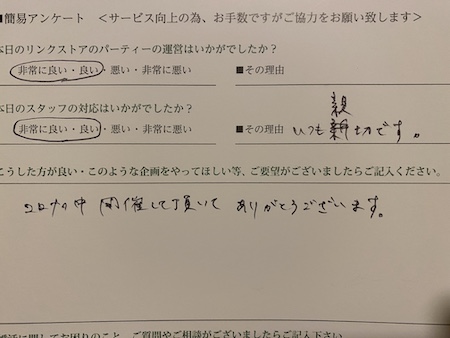 ■簡易アンケート <サービス向上の為、お手数ですがご協力をお願い致します>
本日のリンクストアのパーティーの運営はいかがでしたか?
非常に良い・良い・悪い・非常に悪い ■その理由
本日のスタッフの対応はいかがでしたか?
親
非常に良い・良い・悪い・非常に悪い ■その理由 いつも新切です。
こうした方が良い・このような企画をやってほしい等、ご要望がございましたらご記入ください。
コロナの中 開催して頂いて ありがとうございます。
婚活に関してお困りのこと、ご質問やご相談がございましたらご記入下さい